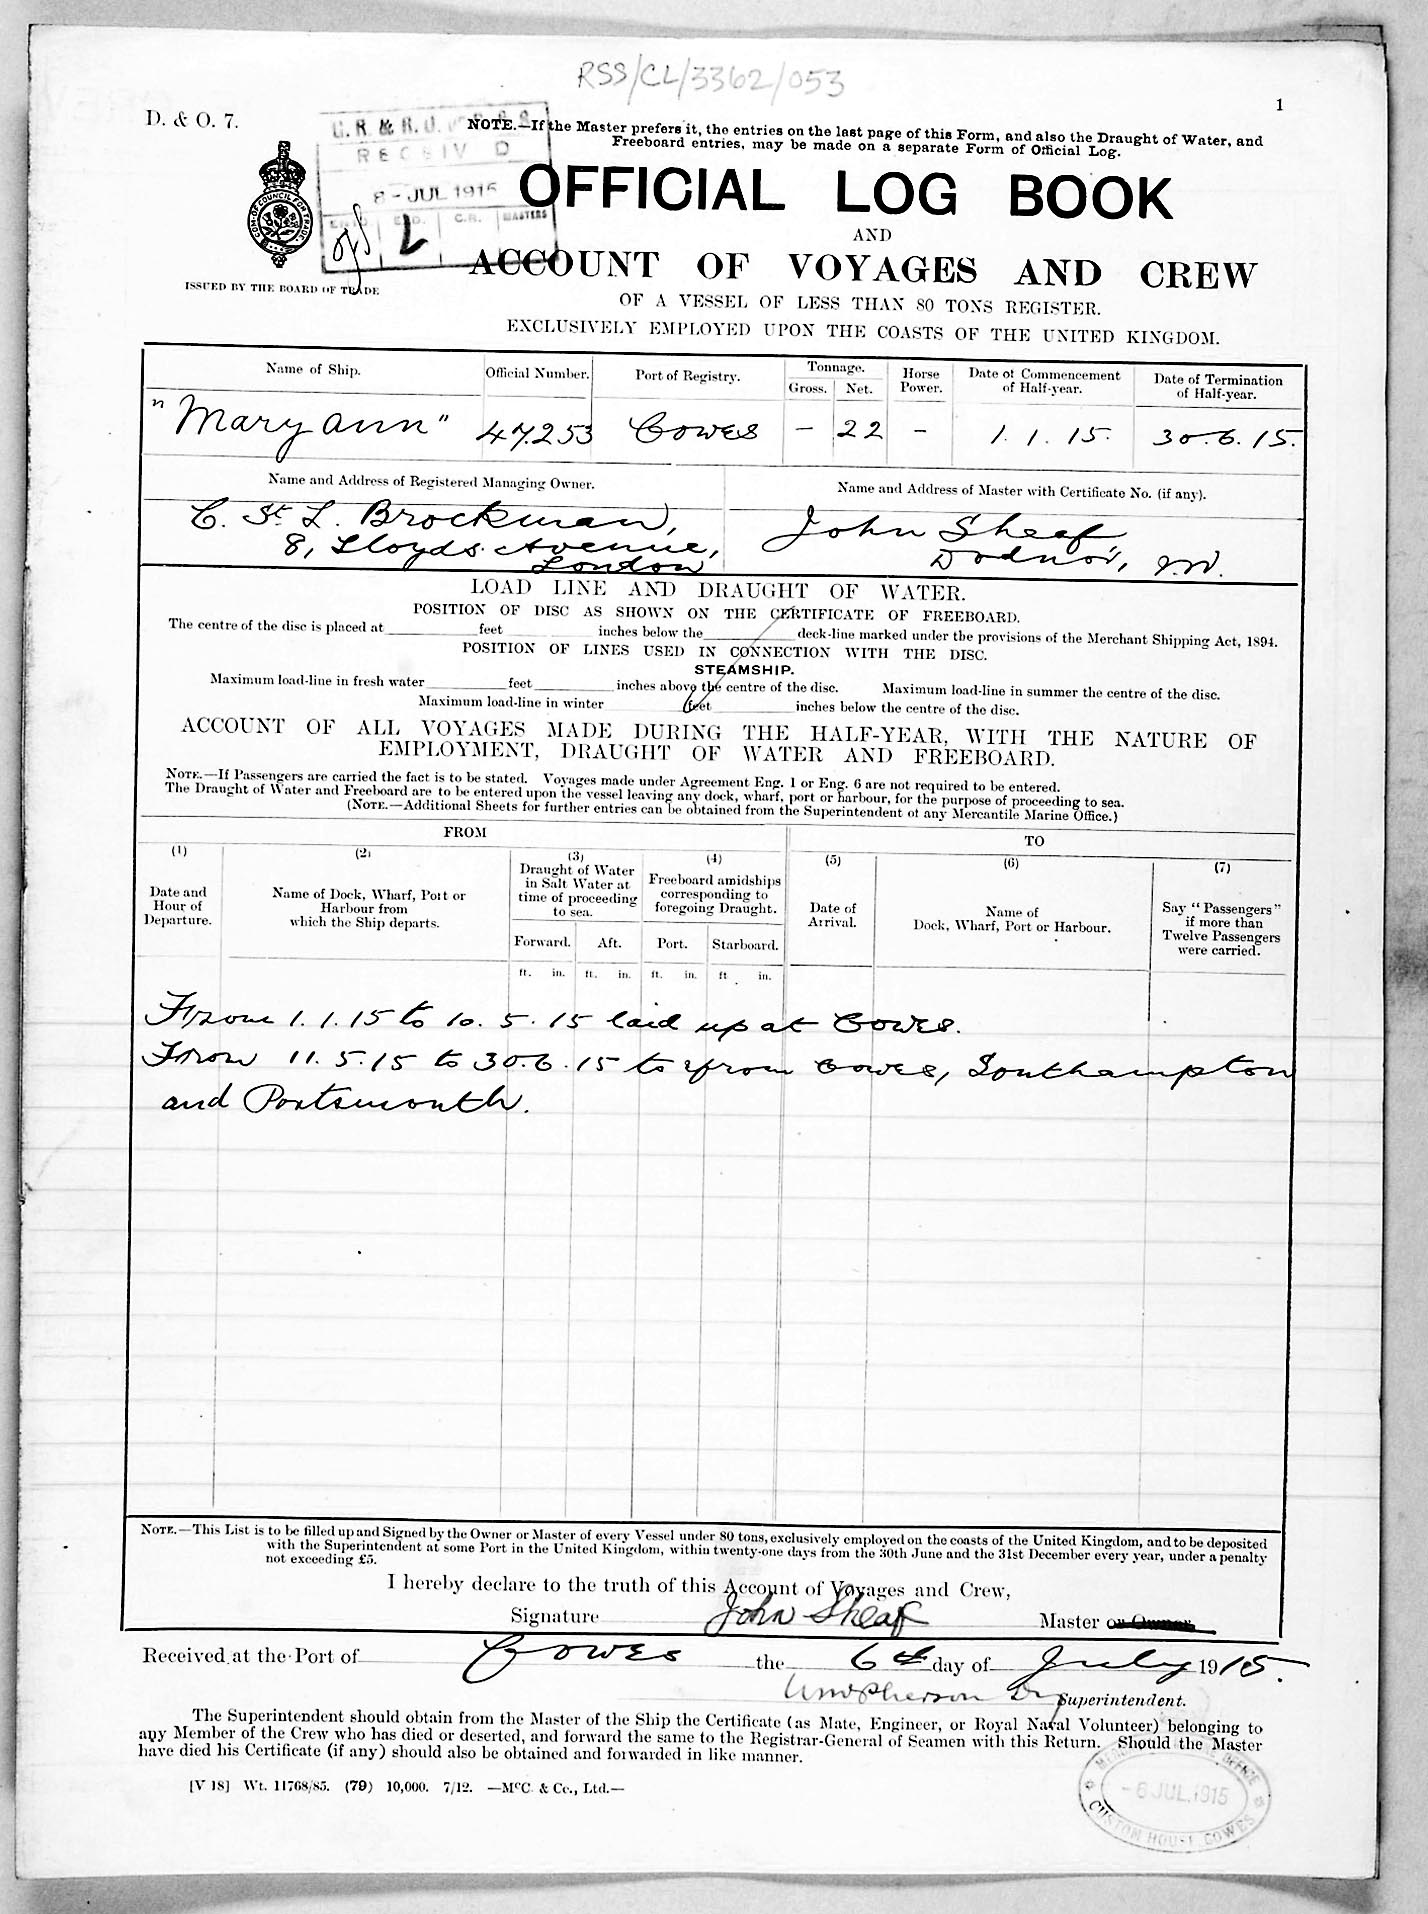 RSS/CL/3362/053
1
D. & O. 7.
NOTE.—If the Master prefers it, the entries on the last page of this Form, and also the Draught of Water, and
Freeboard entries, may be made on a separate Form of Official Log.
RECEIV D
8 - JUL 1915
C.R. MASTERS
L
OFFICIAL LOG BOOK
AND
ACCOUNT OF VOYAGES AND CREW
ISSUED BY THE BOARD OF TRADE
OF A VESSEL OF LESS THAN 80 TONS REGISTER.
EXCLUSIVELY EMPLOYED UPON THE COASTS OF THE UNITED KINGDOM.
Name of Ship. Official Number. Port of Registry. Tonnage. Horse Power. Date of Commencement of Half-year. Date of Termination of Half-year.
Gross. Net.
"Mary Ann" 47253 Cowes - 22 - 1.1.15. 30.6.15.
Name and Address of Registered Managing Owner. Name and Address of Master with Certificate No. (if any).
C. St. L. Brockman, John Sheaf
8, Lloyds Avenue,
London
LOAD LINE AND DRAUGHT OF WATER.
POSITION OF DISC AS SHOWN ON THE CERTIFICATE OF FREEBOARD.
The centre of the disc is placed at feet inches below the deck-line marked under the provisions of the Merchant Shipping Act, 1894.
POSITION OF LINES USED IN CONNECTION WITH THE DISC.
STEAMSHIP.
Maximum load-line in fresh water feet inches above the centre of the disc. Maximum load-line in summer the centre of the disc.
Maximum load-line in winter feet inches below the centre of the disc.
ACCOUNT OF ALL VOYAGES MADE DURING THE HALF-YEAR, WITH THE NATURE OF
EMPLOYMENT, DRAUGHT OF WATER AND FREEBOARD.
NOTE.—If Passengers are carried the fact is to be stated. Voyages made under Agreement Eng. 1 or Eng. 6 are not required to be entered.
The Draught of Water and Freeboard are to be entered upon the vessel leaving any dock, wharf, port or harbour, for the purpose of proceeding to sea.
(NOTE.—Additional Sheets for further entries can be obtained from the Superintendent of any Mercantile Marine Office.)
FROM TO
(1) (2) (3) (4) (5) (6) (7)
Date and Hour of Departure.
Name of Dock, Wharf, Port or Harbour from which the Ship departs.
Draught of Water in Salt Water at time of proceeding to sea.
Freeboard amidships corresponding to foregoing Draught.
Date of Arrival.
Name of Dock, Wharf, Port or Harbour.
Say "Passengers" if more than Twelve Passengers were carried.
Forward. Aft. Port. Starboard.
ft. in. ft. in. ft. in. ft. in.
From 1.1.15 to 10.5.15 laid up at Cowes.
From 11.5.15 to 30.6.15 to & from Cowes, Southampton
and Portsmouth.
NOTE.—This List is to be filled up and Signed by the Owner or Master of every Vessel under 80 tons, exclusively employed on the coasts of the United Kingdom, and to be deposited
with the Superintendent at some Port in the United Kingdom, within twenty-one days from the 30th June and the 31st December every year, under a penalty
not exceeding £5.
I hereby declare to the truth of this Account of Voyages and Crew,
Signature John Sheaf Master or Owner.
Received at the Port of Cowes the 6th day of July 1915.
Superintendent.
The Superintendent should obtain from the Master of the Ship the Certificate (as Mate, Engineer, or Royal Naval Volunteer) belonging to
any Member of the Crew who has died or deserted, and forward the same to the Registrar-General of Seamen with this Return. Should the Master
have died his Certificate (if any) should also be obtained and forwarded in like manner.
[V 18] Wt. 11768/85. (79) 10,000. 7/12. —McC. & Co., Ltd.—
- 6 JUL. 1915
CUSTOM HOUSE COWES